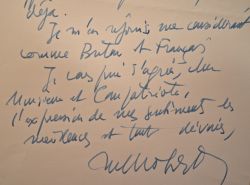 déjà.
Je m'en réjouis me considérant
comme Breton et Français
Je vous prie d'agréer, cher
Monsieur et Compatriote,
l'expression de mes sentiments les
meilleurs et tout dévoués,